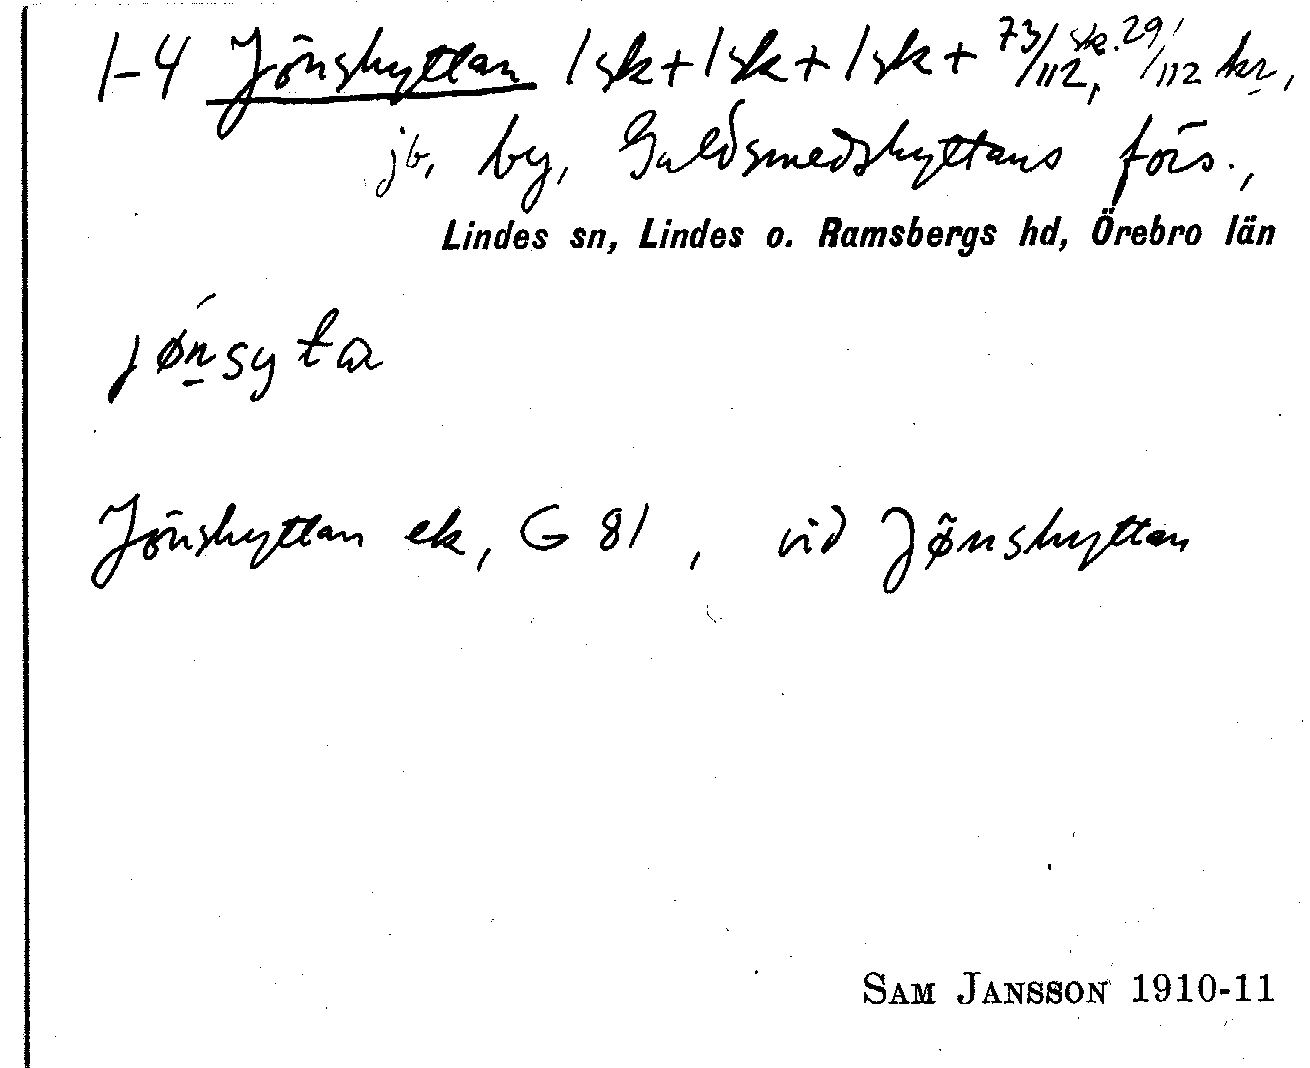 1-4 Jönshyttan 1 sk + 1 sk + 1 sk + 73/112 sk. 29/112 kr,
jb, by, Guldsmedshyttans förs.,
Lindes sn, Lindes o. Ramsbergs hd, Örebro län
jǿn̲syta
Jönshyttan ek, G 81, vid Jönshyttan
SAM JANSSON 1910-11